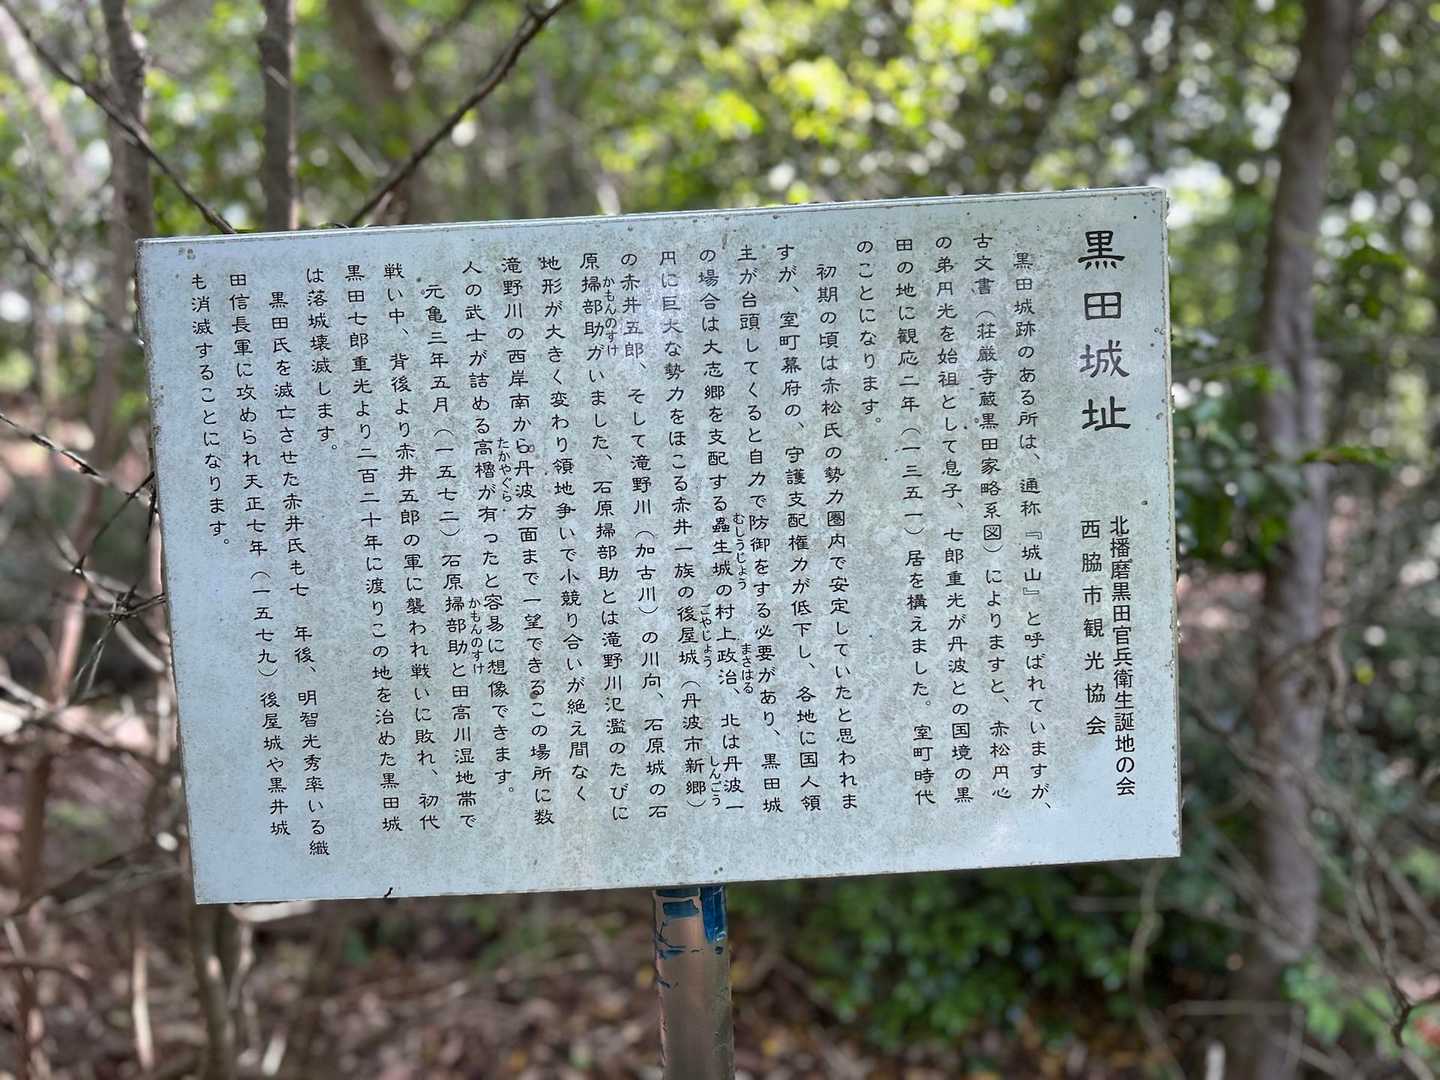 黒田城址
北播磨黒田官兵衛生誕地の会
西脇市観光協会
黒田城跡のある所は、通称『城山』と呼ばれていますが、
古文書（荘厳寺蔵黒田家略系図）によりますと、赤松円心
の弟円光を始祖として息子、七郎重光が丹波との国境の黒
田の地に観応二年（一三五一）居を構えました。室町時代
のことになります。
初期の頃は赤松氏の勢力圏内で安定していたと思われま
すが、室町幕府の、守護支配権力が低下し、各地に国人領
主が台頭してくると自力で防御をする必要があり、黒田城
の場合は大志郷を支配する蟲生城の村上政治、北は丹波一
むしうじょう
まさはる
円に巨大な勢力をほこる赤井一族の後屋城（丹波市新郷）
ごやじょう
しんごう
の赤井五郎、そして滝野川（加古川）の川向、石原城の石
原掃部助がいました、石原掃部助とは滝野川氾濫のたびに
かもんのすけ
地形が大きく変わり領地争いで小競り合いが絶え間なく
滝野川の西岸南から丹波方面まで一望できるこの場所に数
人の武士が詰める高櫓が有ったと容易に想像できます。
たかやぐら
元亀三年五月（一五七二）石原掃部助と田高川湿地帯で
かもんのすけ
戦い中、背後より赤井五郎の軍に襲われ戦いに敗れ、初代
黒田七郎重光より二百二十年に渡りこの地を治めた黒田城
は落城壊滅します。
黒田氏を滅亡させた赤井氏も七 年後、明智光秀率いる織
田信長軍に攻められ天正七年（一五七九）後屋城や黒井城
も消滅することになります。